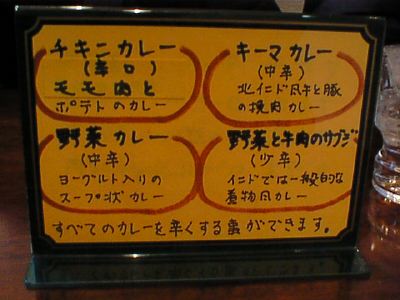 チキンカレー
(辛口)
モモ肉と
ポテトのカレー
キーマカレー
(中辛)
北インド風牛と豚
の挽肉カレー
野菜カレー
(中辛)
ヨーグルト入りの
スープ状カレー
野菜と牛肉のサブジ
(少辛)
インドでは一般的な
煮物風カレー
すべてのカレーを辛くする事ができます。